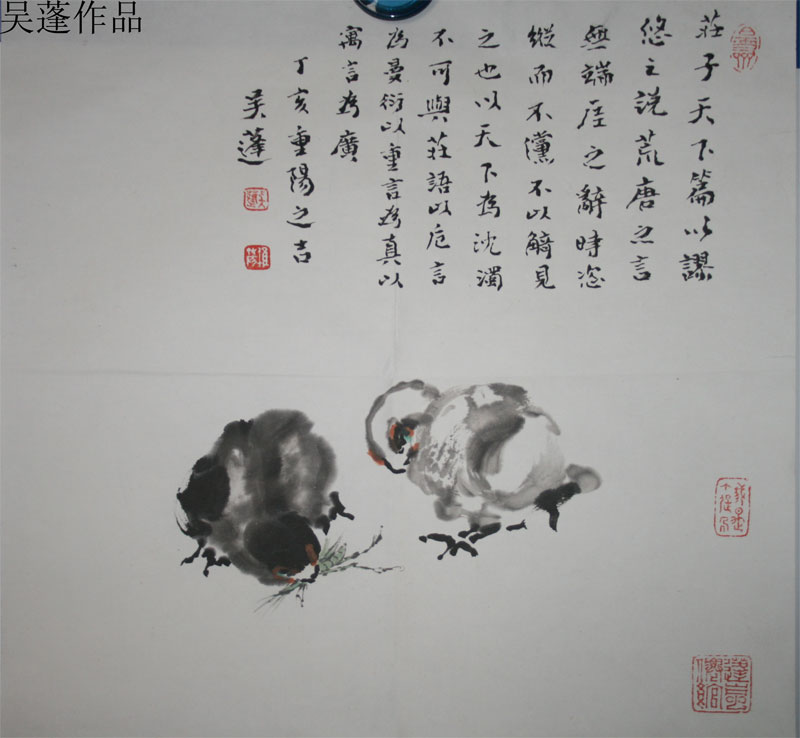 吴蓬作品
莊子天下篇以謬
悠之說荒唐之言
無端厓之辭時恣
縱而不儻不以觭見
之也以天下為沈濁
不可與莊語以卮言
為曼衍以重言為真以
寓言為廣
丁亥重陽之吉
吳蓬